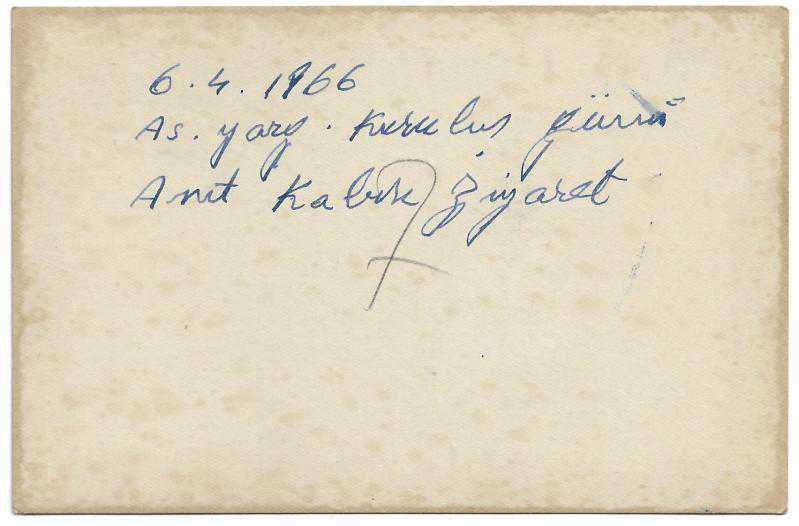 6.4.1966
As. yarg. Kuruluş günü
Anıt Kabir Ziyaret
7